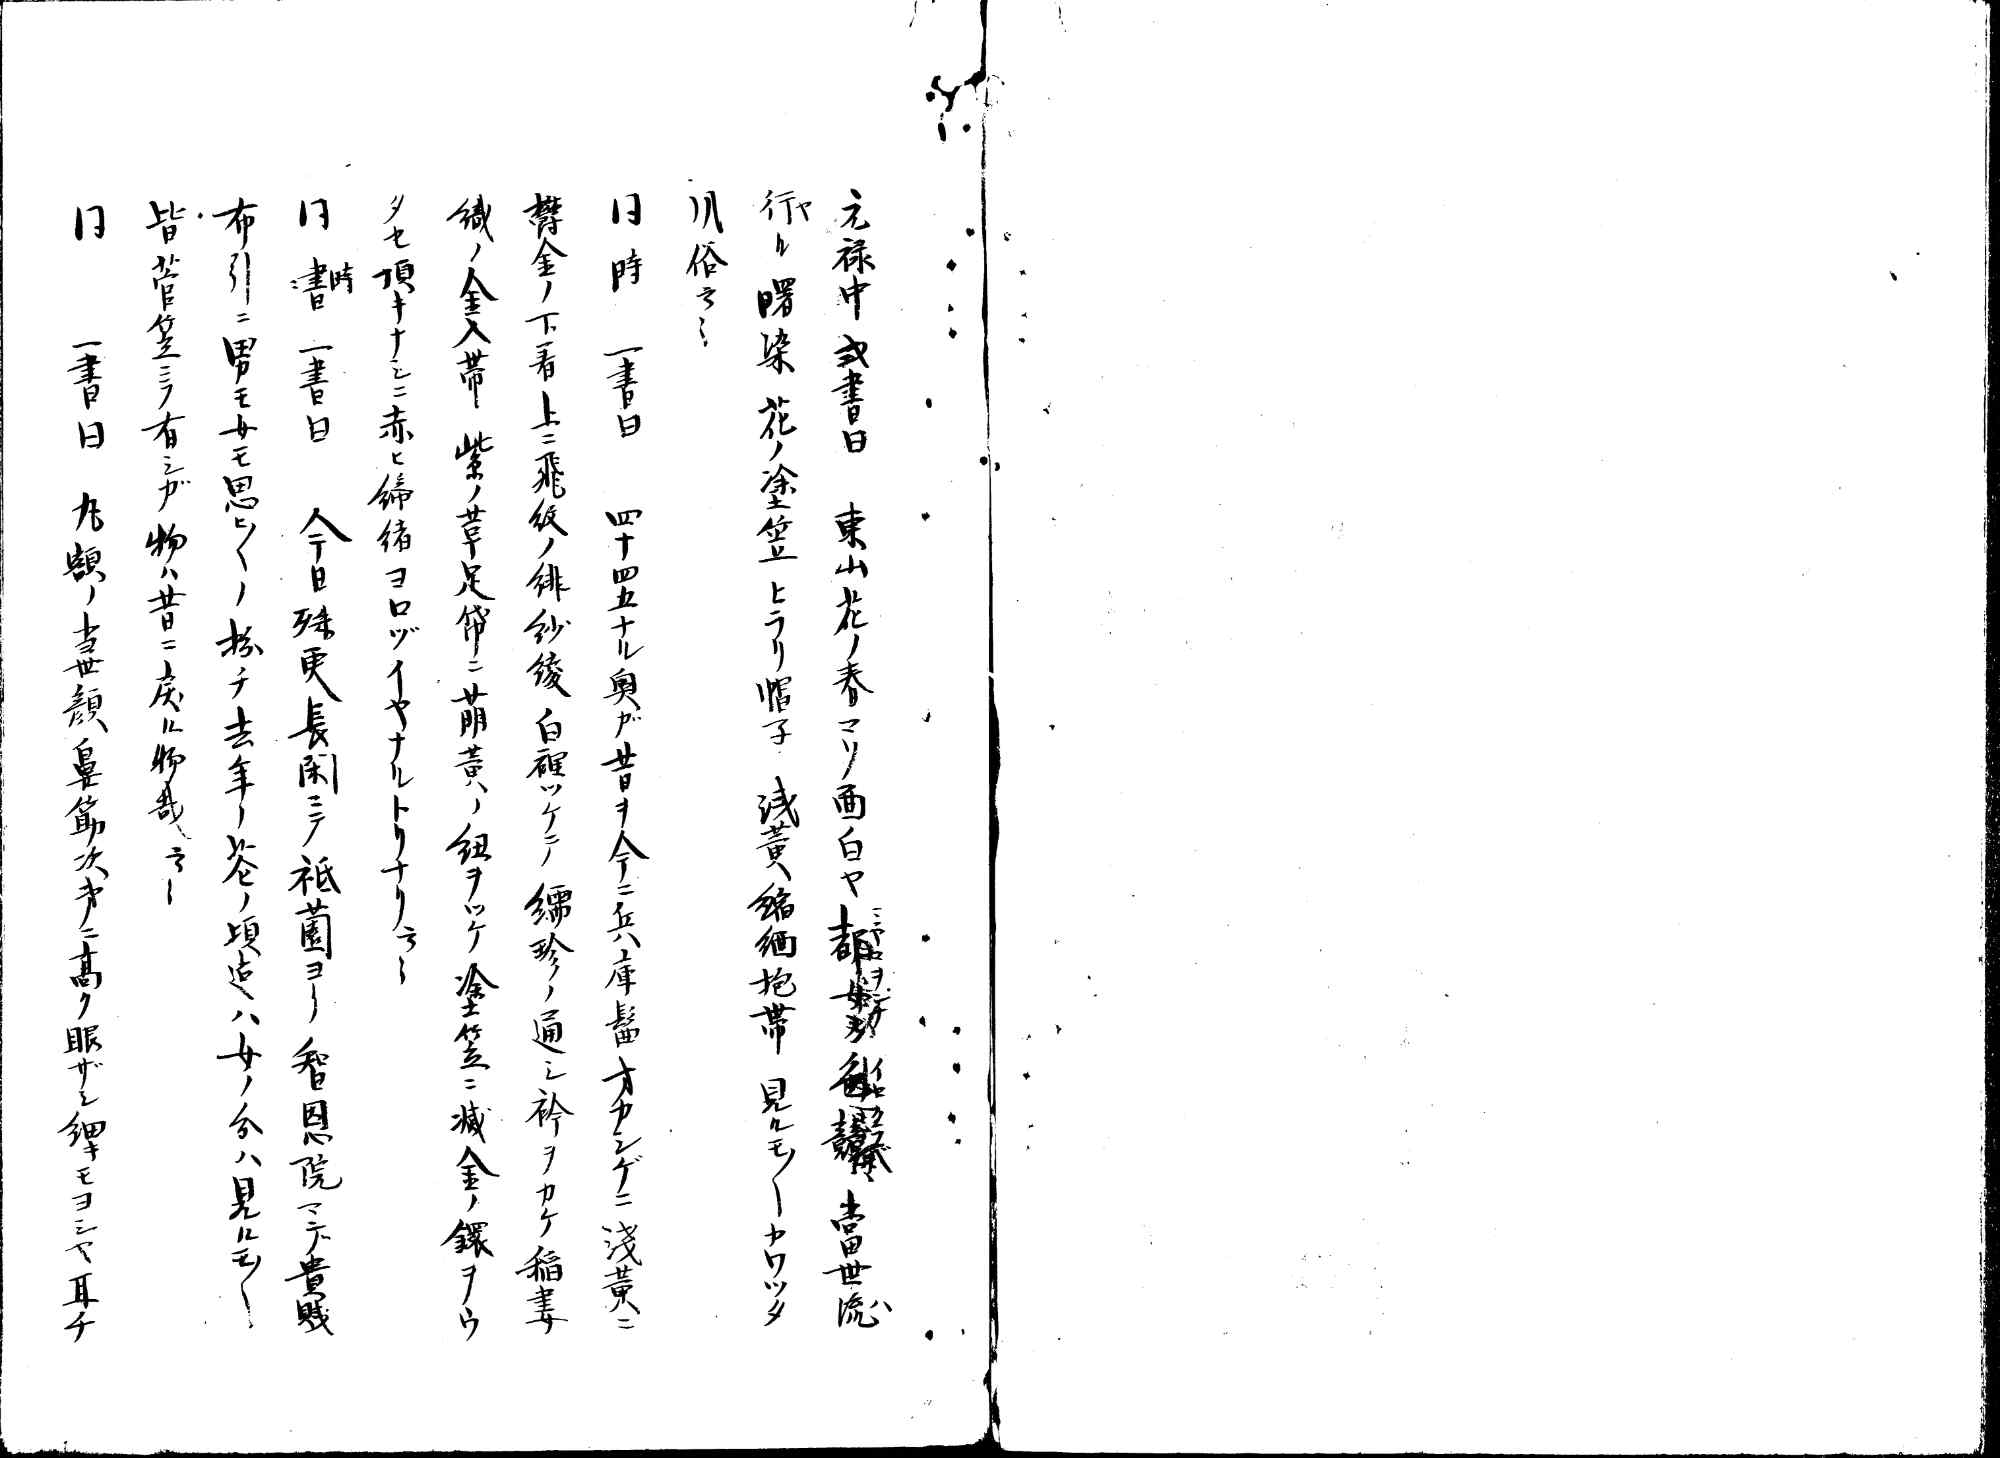 元禄中或書曰　東山花ノ春マソ面白ヤ都女郎色競當世流ハ
行ヤル曙染花ノ塗笠ヒラリ帽子浅黄縮緬抱帯見ルモノーカワツタ
風俗云々
同時　一書曰　四十四五ナル奥ガ昔ヲ今ニ兵庫髷オカシゲニ浅黄ニ
欝金ノ下着上ニ飛紋ノ緋紗綾白裡ツケテ繻珍ノ通シ衿ヲカケ稲妻
織ノ金入帯紫ノ革足袋ニ萠黄ノ紐ヲツケ塗笠ニ滅金ノ鐶ヲウ
タセ頂キナシニ赤ヒ締緒ヨロヅイヤナルトリナリ云々
同時　一書曰　今日殊更長閑ニテ祗薗ヨリ智恩院マデ貴賎
布引ニ男モ女モ思ヒ〱ノ扮チ去年ノ花ノ頃迠ハ女ノ分ハ見ルモノ
皆菅笠ニテ有シガ物ハ昔ニ戻ル物哉云々
同　一書曰　丸額ノ当世顔鼻筋次第ニ高ク眼ザシ細キモヨシヤ耳チ